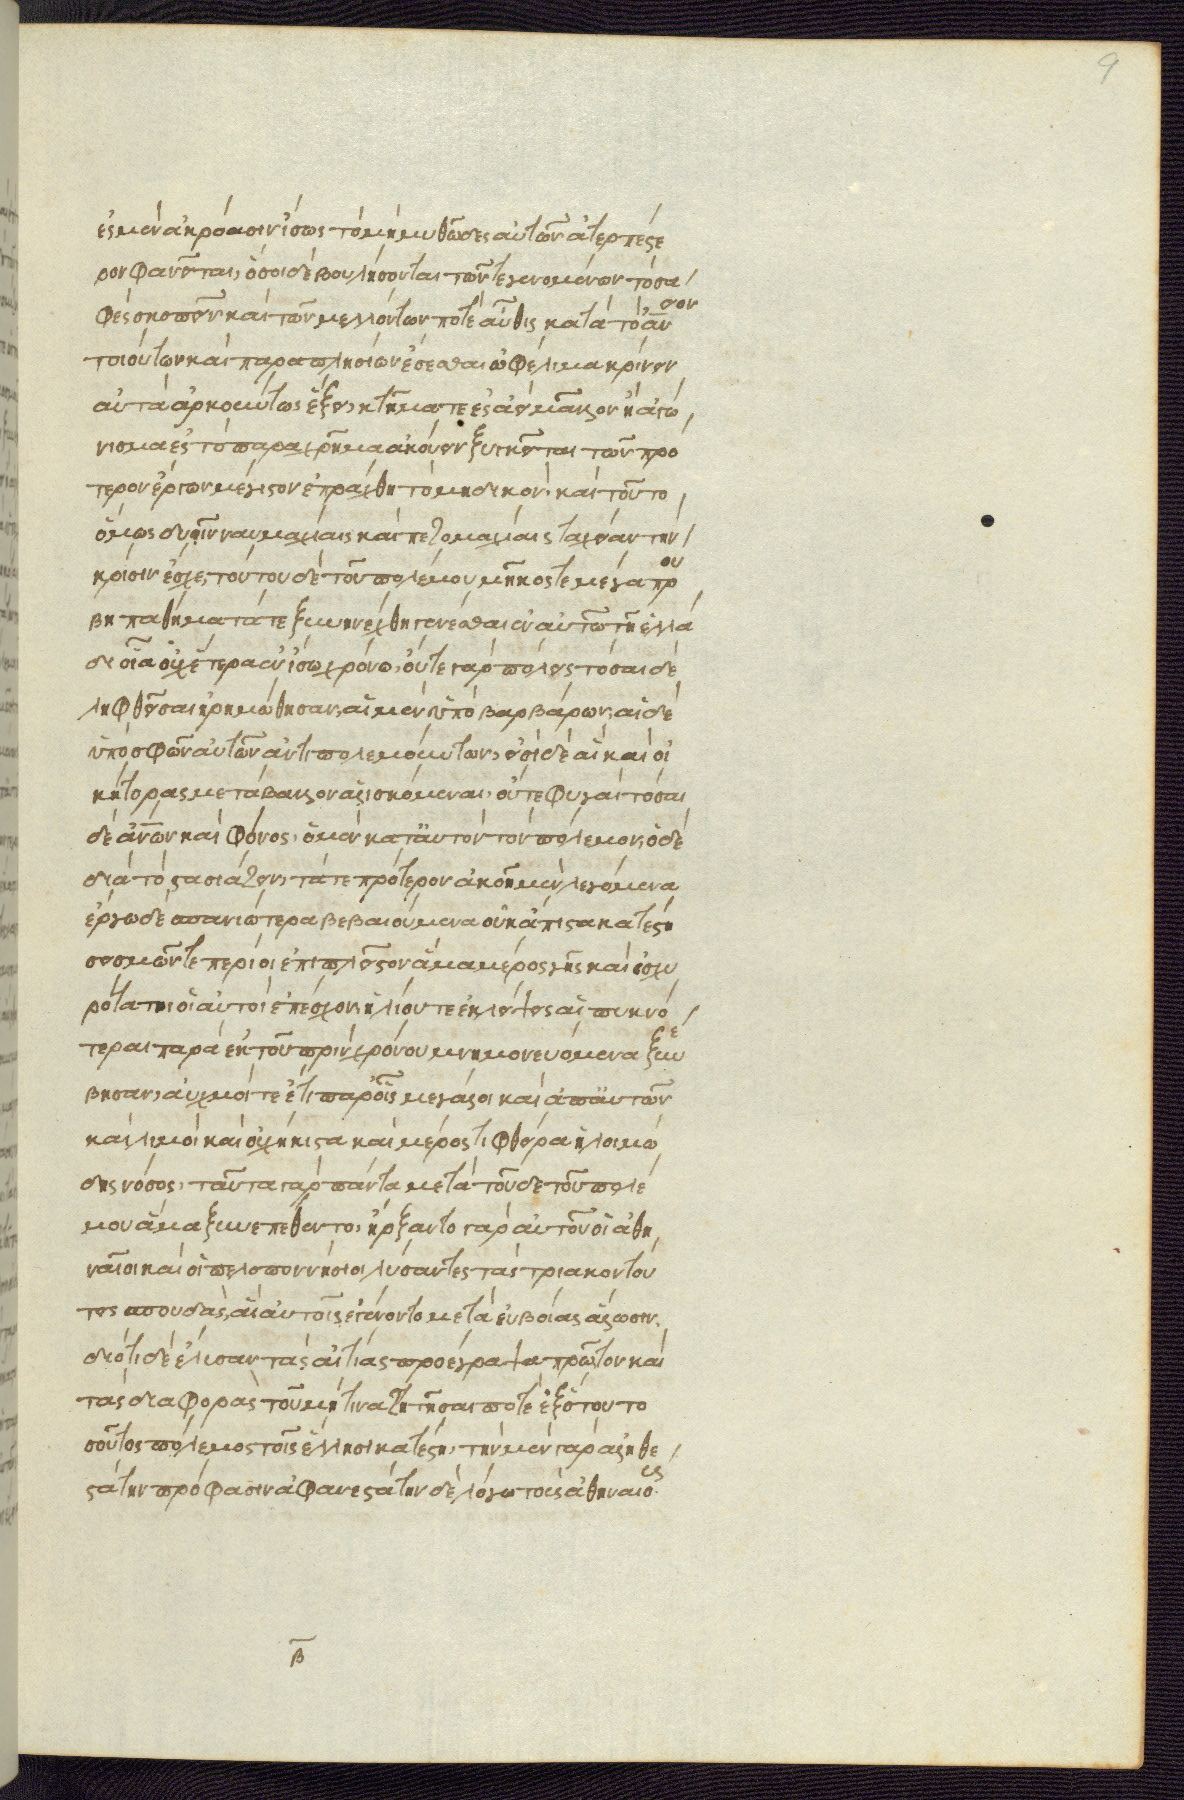 9
ἐς μὲν ἀκρόασιν ἴσως τὸ μὴ μυθῶδες αὐτῶν ἀτερπέστε
ρον φανεῖται, ὅσοι δὲ βουλήσονται τῶν τε γενομένων τὸ σα
φὲς σκοπεῖν καὶ τῶν μελλόντων ποτὲ αὖθις κατὰ τὸ ἀν̅ειον
τοιούτων καὶ παραπλησίων ἔσεσθαι ὠφέλιμα κρίνειν
αὐτὰ ἀρκούντως ἕξει, κτῆμά τε ἐς ἀεὶ μᾶλλον ἢ ἀγώ
νισμα ἐς τὸ παραχρῆμα ἀκούειν ξύγκειται τῶν προ
τερον ἔργων μέγιστον ἐπράχθη τὸ μηδικόν, καὶ τοῦτο
ὅμως δυοῖν ναυμαχίαις καὶ πεζομαχίαις ταχεῖαν τὴν
κρίσιν ἔσχε, τούτου δὲ τοῦ πολέμου μῆκός τε μέγα προὔ
βη παθήματά τε ξυνηνέχθη γενέσθαι ἐν αὐτῶ τῆ ἑλλά
δι οἷα οὐχ ἕτερα ἐν ἴσω χρόνω, οὔτε γὰρ πόλεις τοσαίδε
ληφθεῖσαι ἠρημώθησαν, αἱ μὲν ὑπὸ βαρβάρων, αἱ δὲ
ὑπὸ σφῶν αὐτῶν ἀντιπολεμούντων, εἰσὶ δὲ αἳ καὶ οἰ
κήτορας μετάβαλλον ἁλισκόμεναι, οὔτε φυγαὶ τοσαί
δε ἀν̅ων καὶ φόνος, ὁ μὲν κατ' αὐτὸν τὸν πόλεμον, ὁ δὲ
διὰ τὸ στασιάζειν, τά τε πρότερον ἀκοῆ μὲν λεγόμενα
ἔργω δὲ σπανιώτερα βεβαιούμενα οὐκ ἄπιστα κατέστη
σεισμῶν τε πέρι οἳ ἐπιπλεῖστον ἅμα μέρος γῆς καὶ ἰσχυ
ρότατοι οἱ αὐτοὶ ἐπέσχον, ἡλίου τε ἐκλείψεις αἳ πυκνό
τεραι παρὰ ἐκ τοῦ πρὶν χρόνου μνημονευόμενα ξυνέ
βησαν, αὐχμοί τε ἔτι παρ' οἷς μεγάλοι καὶ ἀπ' αὐτῶν
καὶ λιμοὶ καὶ οὐχ ἥκιστα καὶ μέρος τι φθείρα ἡ λοιμώ
δης νόσος, ταῦτα γὰρ πάντα μετὰ τοῦδε τοῦ πολέ
μου ἅμα ξυνεπέθεντο, ἤρξαντο γὰρ αὐτοῦ οἱ ἀθη
ναῖοι καὶ οἱ πελοποννήσιοι λύσαντες τὰς τριακοντού
τεις σπονδὰς, αἳ αὐτοῖς ἐγένοντο μετὰ εὐβοίας ἅλωσιν,
διότι δὲ ἔλυσαν τὰς αἰτίας προέγραψα πρῶτον καὶ
τὰς διαφορὰς τοῦ μή τινα ζητῆσαι ποτὲ ἐξ ὅτου το
σοῦτος πόλεμος τοῖς ἕλλησι κατέστη, τὴν μὲν γὰρ ἀληθε
στάτην πρόφασιν ἀφανεστάτην δὲ λόγω τοὺς ἀθηναίους
β̅